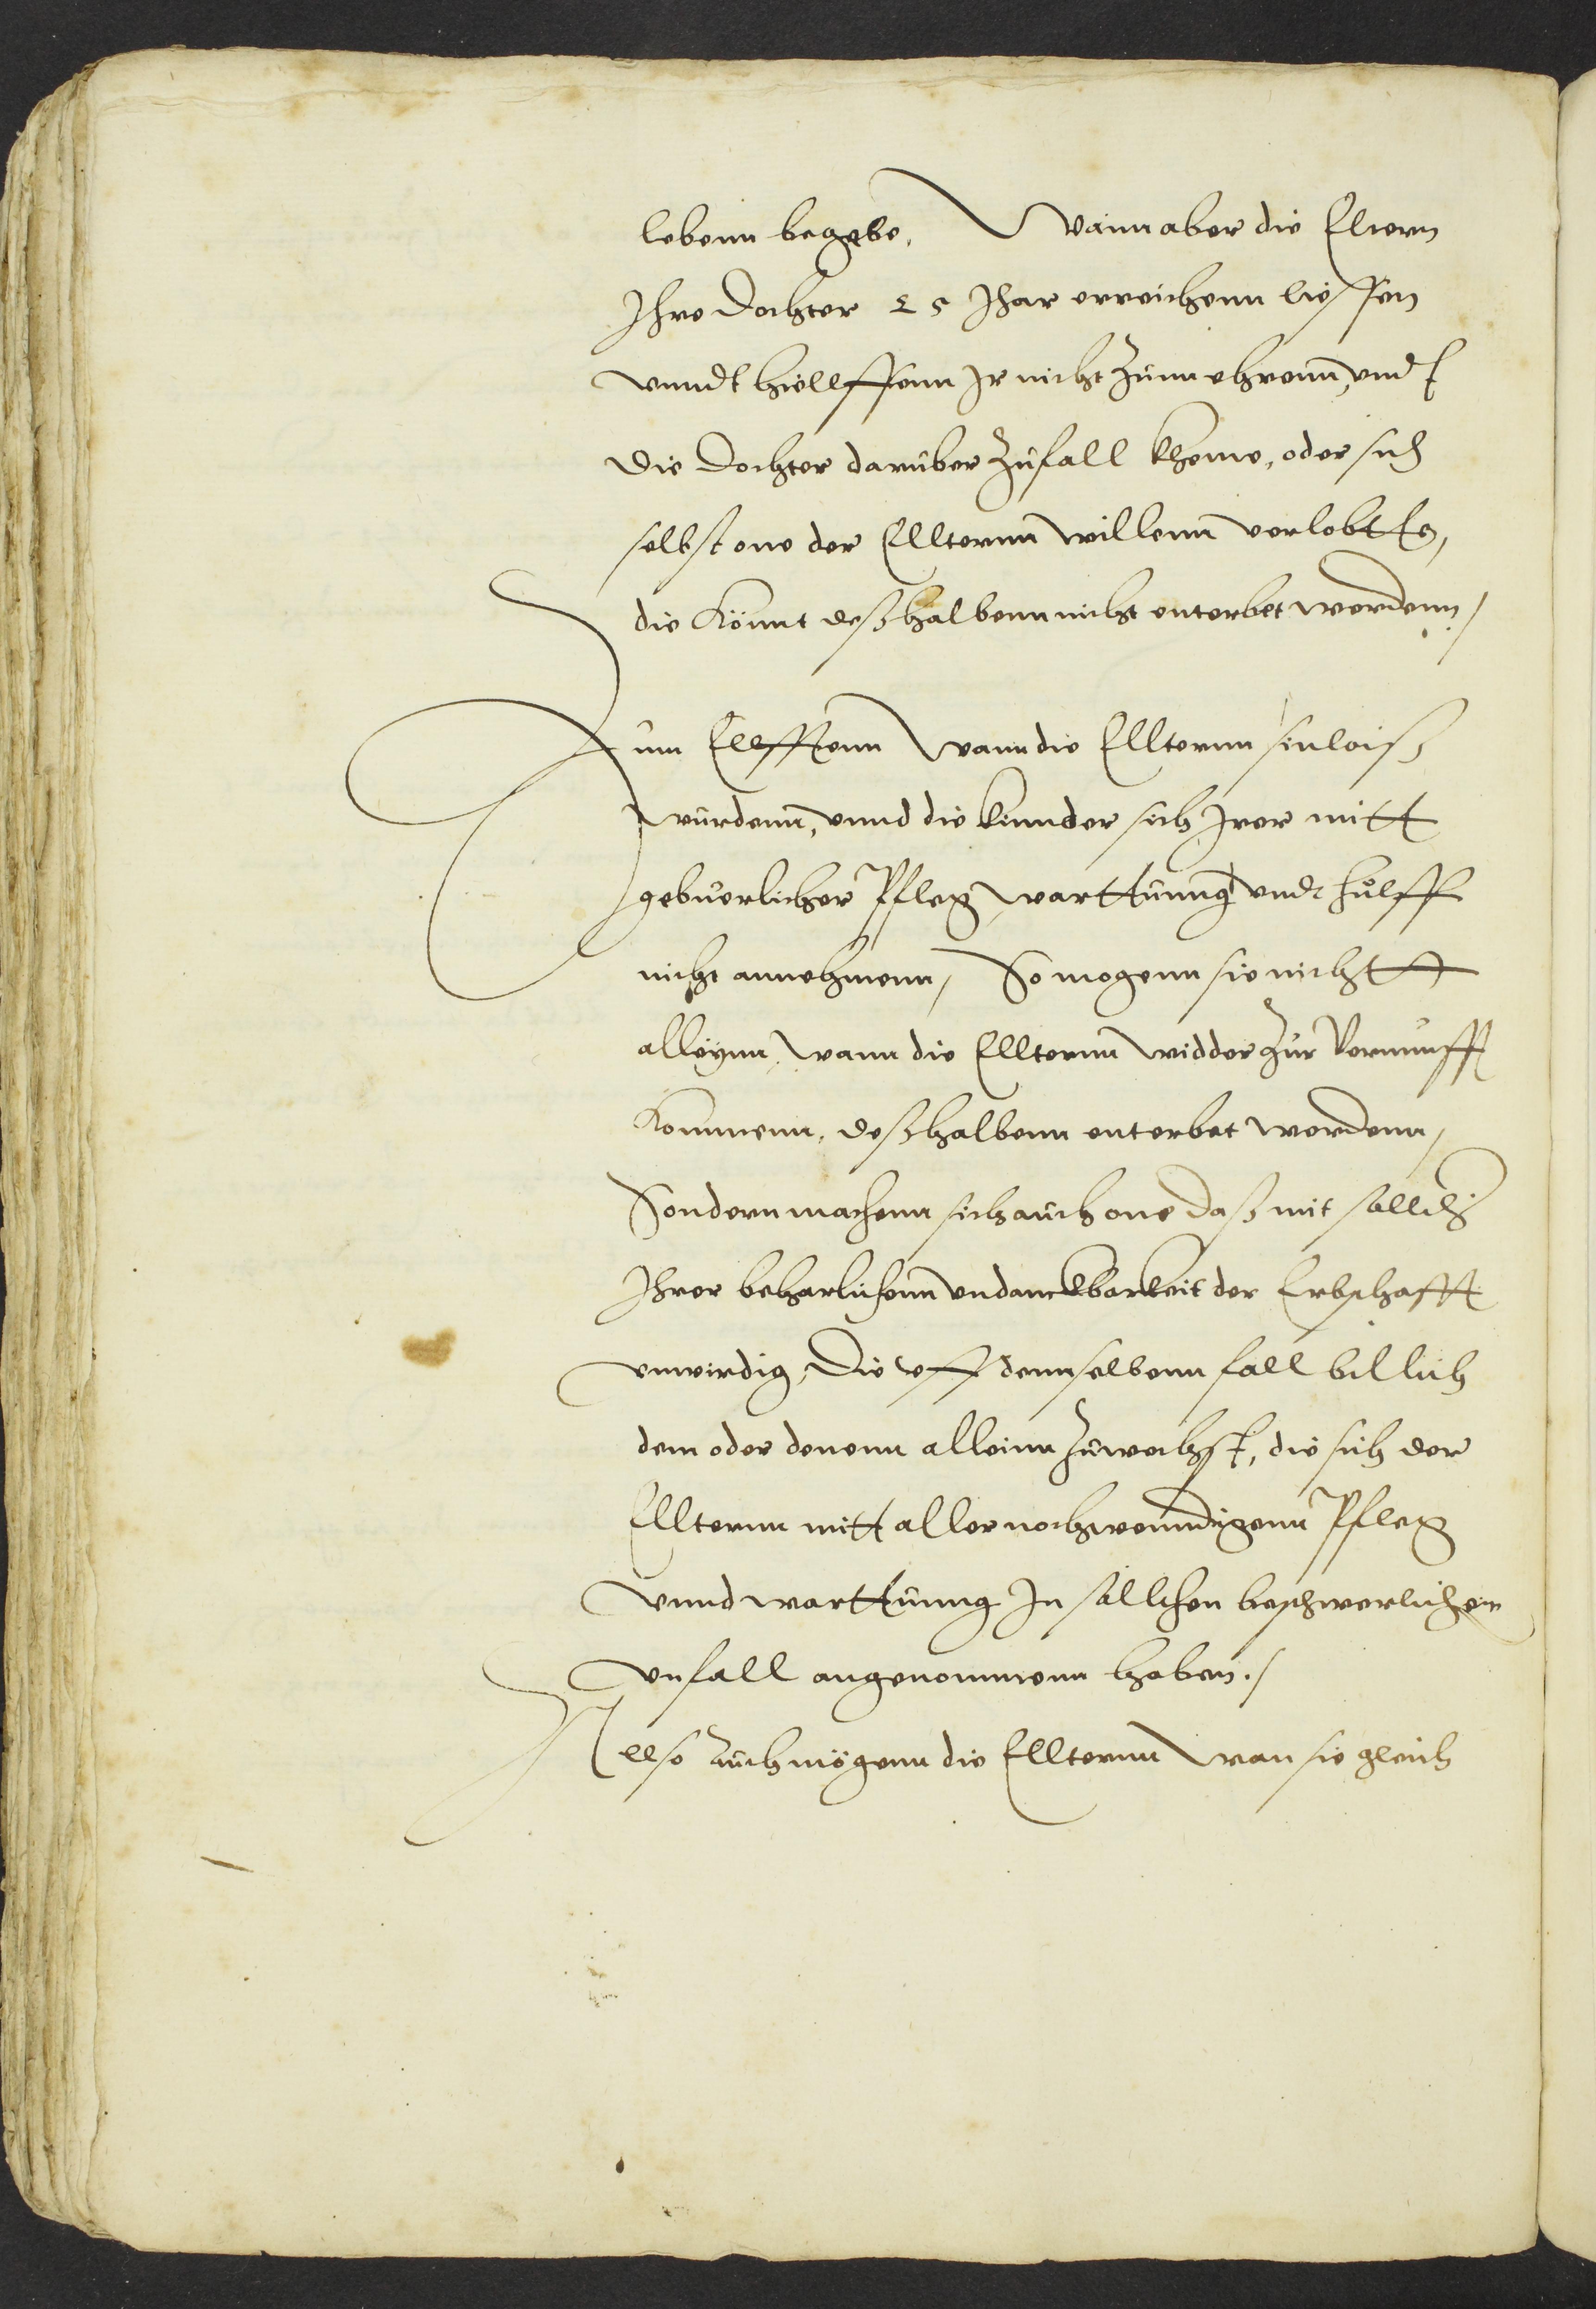 lebenn begebe. Wann aber die Eltern
Ihre Dochter 25 Jhar erreichenn liessen
vnndt hielffenn Ir nicht zunn ehrenn, vnd
die Dochter daruber zufall kheme, oder sich
selbst one der Ellternn willenn verlobtte,
die könnt deßhalbenn nicht enterbet werdenn /
Zum Eelfftenn wann die Ellternn sinloiß
würdenn, vnnd die kinnder sich Irer mitt
gebuerlicher Pfleg, warttunng vndt hülff
nicht annehmenn, So mogenn sie nichtt
alleynn, wann die Ellternn widder zur Vernunfft
kommenn, deßhalbenn enterbet werdenn,
Sondern machenn sich auch one daß mit sollch
Ihrer beharlichenn vndanckbarkeit der Erbschafft
vnwirdig, Die vff dennselbenn fall billich
dem oder denenn alleinn zuwechst, die sich der
Elltern mitt aller nothwenndigenn Pfleg
vnnd warttunng In söllchen beschwerlichen
vnfall angenommenn haben. /
Allso auch mögenn die Elltern wan sie gleich